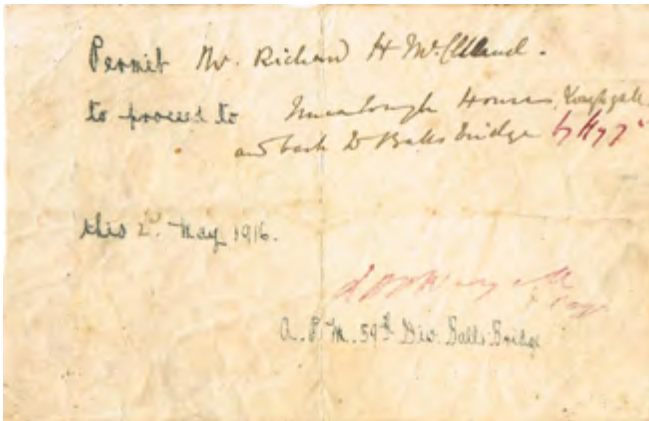 Permit Mr. Richard H McClelland.
to proceed to House, Loughgall
and back to Balls bridge by
this 2d. May 1916.
A. P. M. 59th Div. Balls Bridge